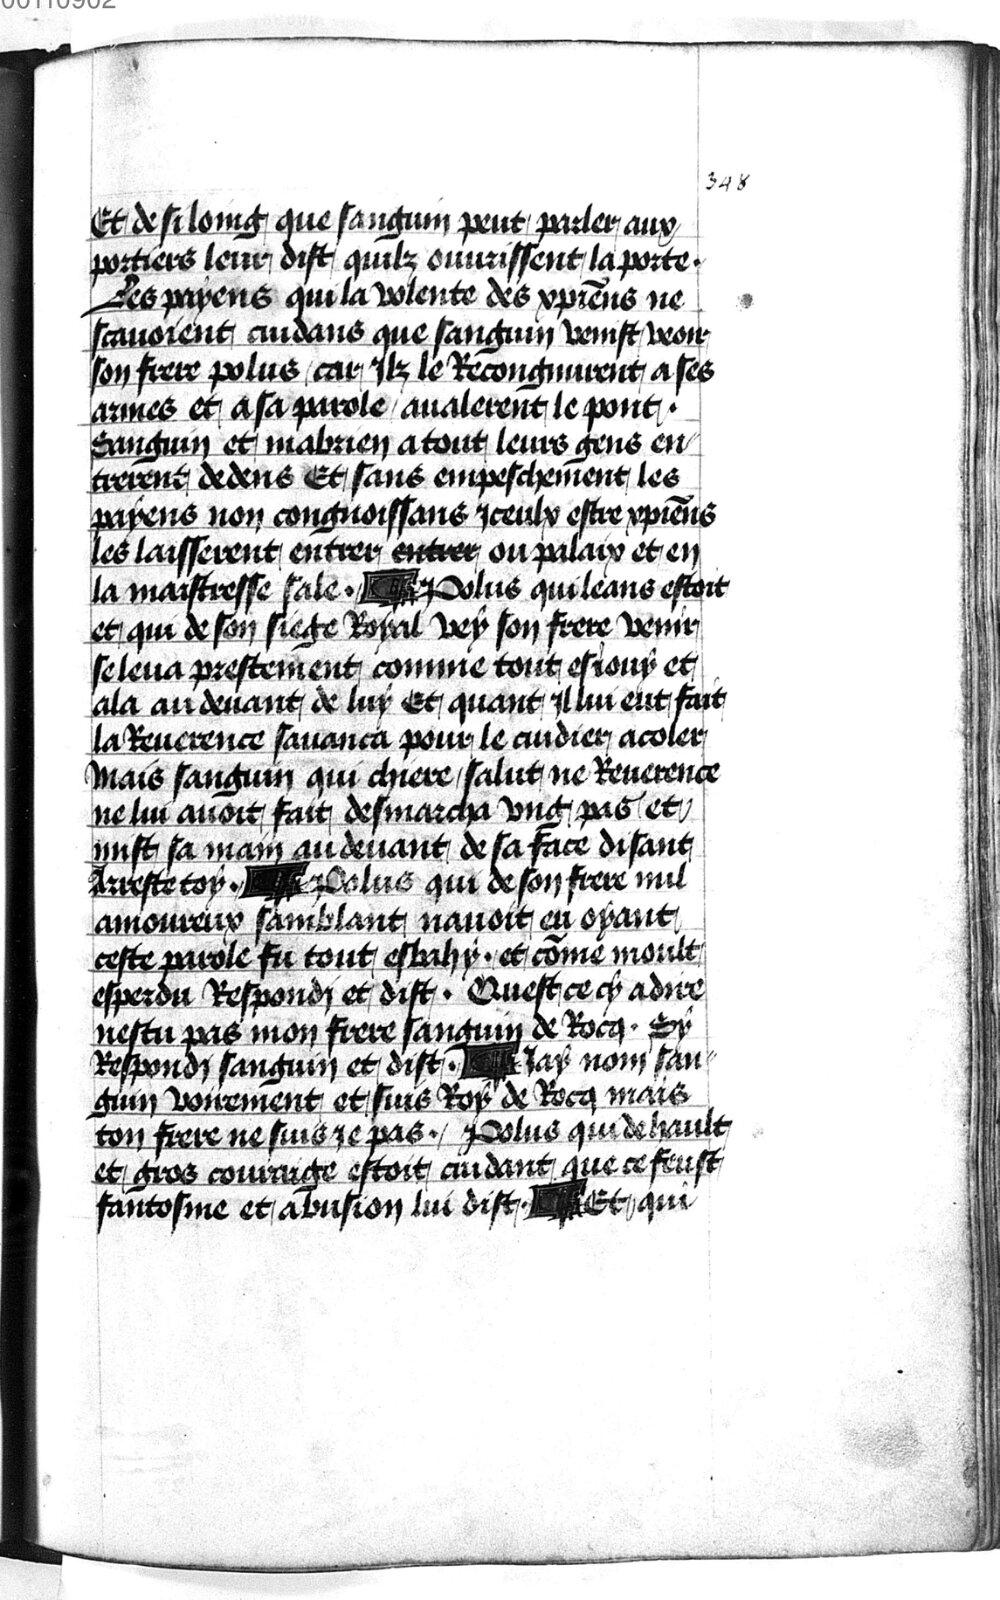 00110902
348
Et de si loing que sanguin peut parler aux
portiers leur dist quilz ouurissent la porte .
Les payens qui la volente des xpiēns ne
scauoient cuidans que sanguin venist veoir
son frere polus / car Jlz le Recongnurent a ses
armes et a sa parole / aualerent le pont .
Sanguin et mabrien a tout leurs gens en⸗
trerent dedens Et sans empeschement les
payens non congnoissans Jceulx estre xpiēns
les laisserent entrer entrer ou palaix et en
la maistresse sale . Polus qui leans estoit
et qui de son siege Royal vey son frere venir
se leua prestement comme tout esiouy et
ala au deuant de luy Et quant Jl lui eut fait
la Reuerence sauanca pour le cuidier acoler
Mais sanguin qui chiere / salut ne Reuerence
ne lui auoit fait desmarcha vng pas et
mist sa main au deuant de sa face disant
Arreste toy . Polus qui de son frere nul
amoureux samblant nauoit eu oyant
ceste parole fu tout esbahy . et cōme moult
esperdu Respondj et dist . Quest ce cy a dire
nestu pas mon frere sanguin de Rocq . Sy
Respondj sanguin et dist . Jay nom san⸗
guin voirement et suis Roy de Rocq mais
ton frere ne suis Je pas . Polus qui de hault
et gros courage estoit cuidant que ce feust
fantosme et abusion lui dist . Et qui